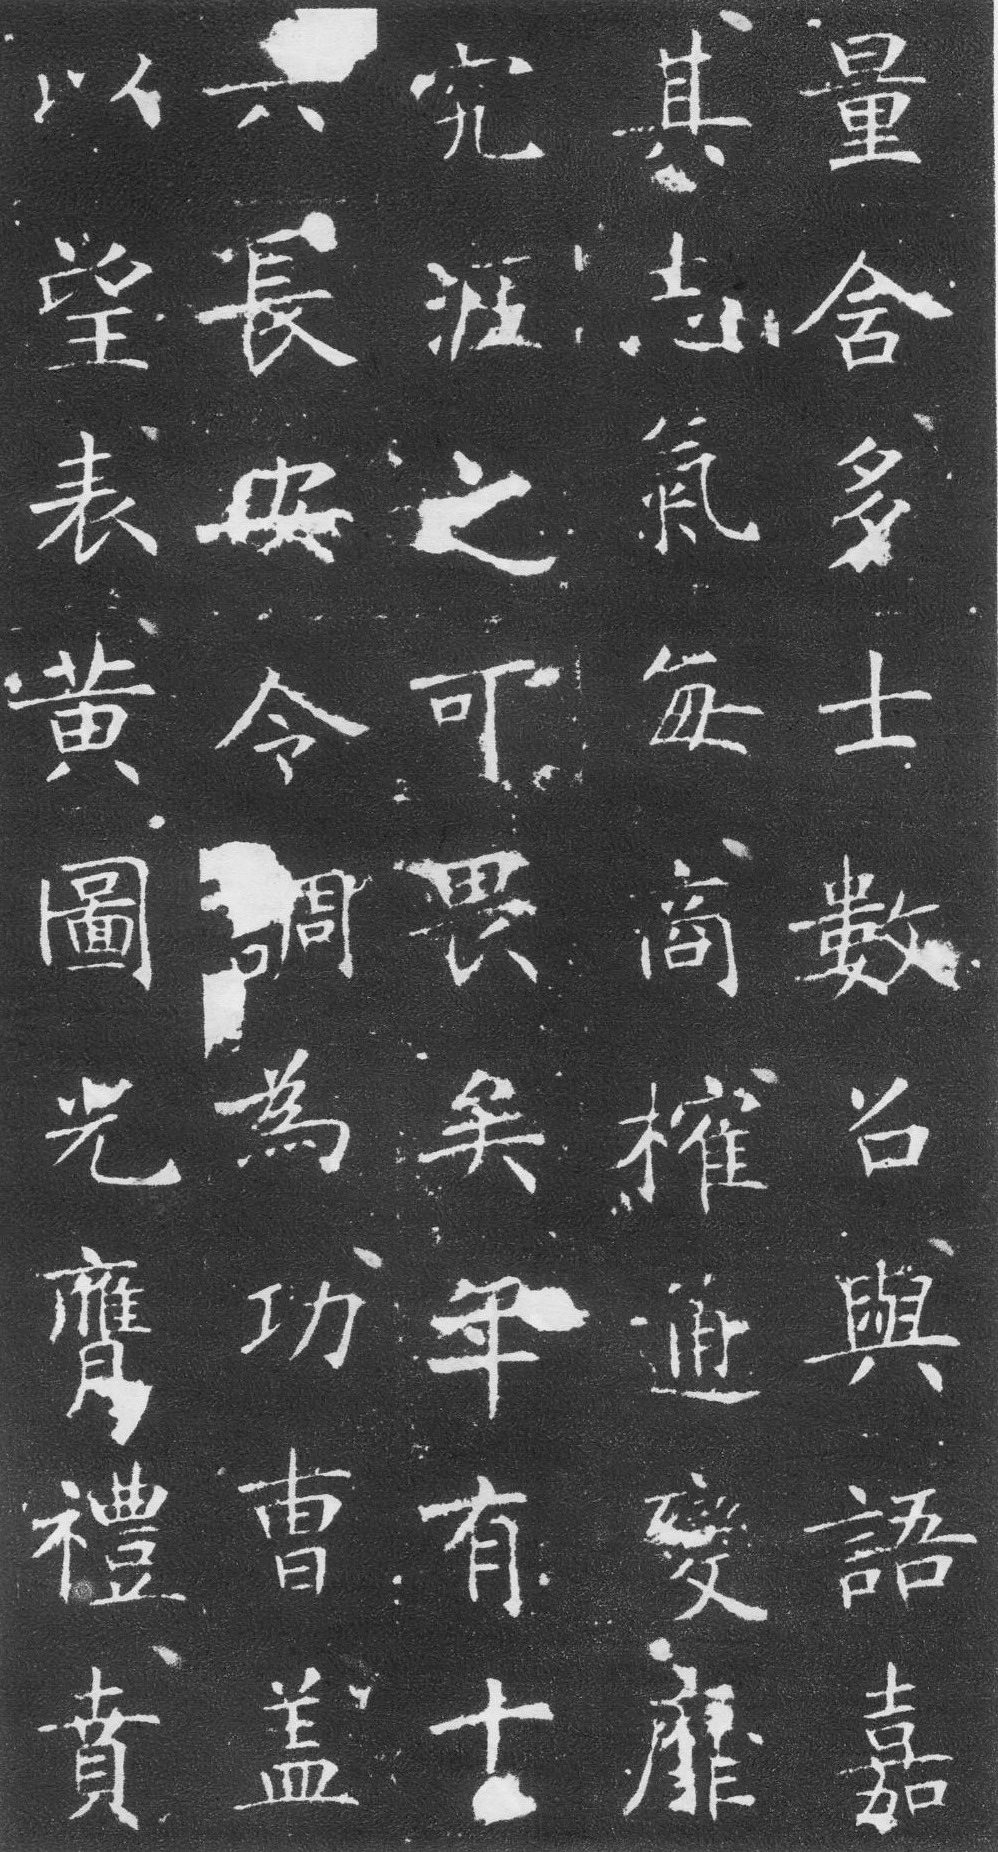 量舍多士數召與語嘉
其志氣每商榷通變靡
究涯之可畏矣年有十
六長安令調為功曹盖
以望表黃圖光膺禮賁